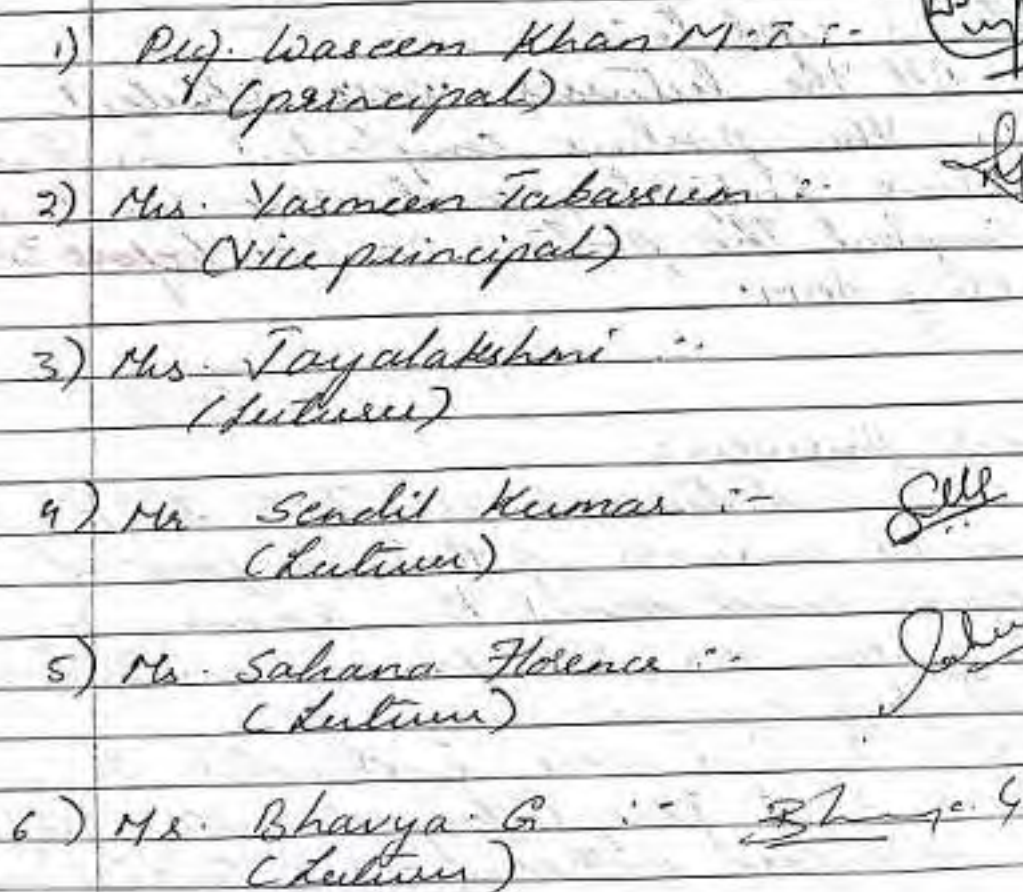 1) Prof. Waseem Khan M.I :-
(principal)
2) Mrs. Yasmeen Tabassum :-
(Vice principal)
3) Mrs. Jayalakshmi :-
(Lecturer)
4) Mr. Sendil Kumar :-
(Lecturer)
5) Ms. Sahana Florence :-
(Lecturer)
6) Ms. Bhavya. G :-
(Lecturer)